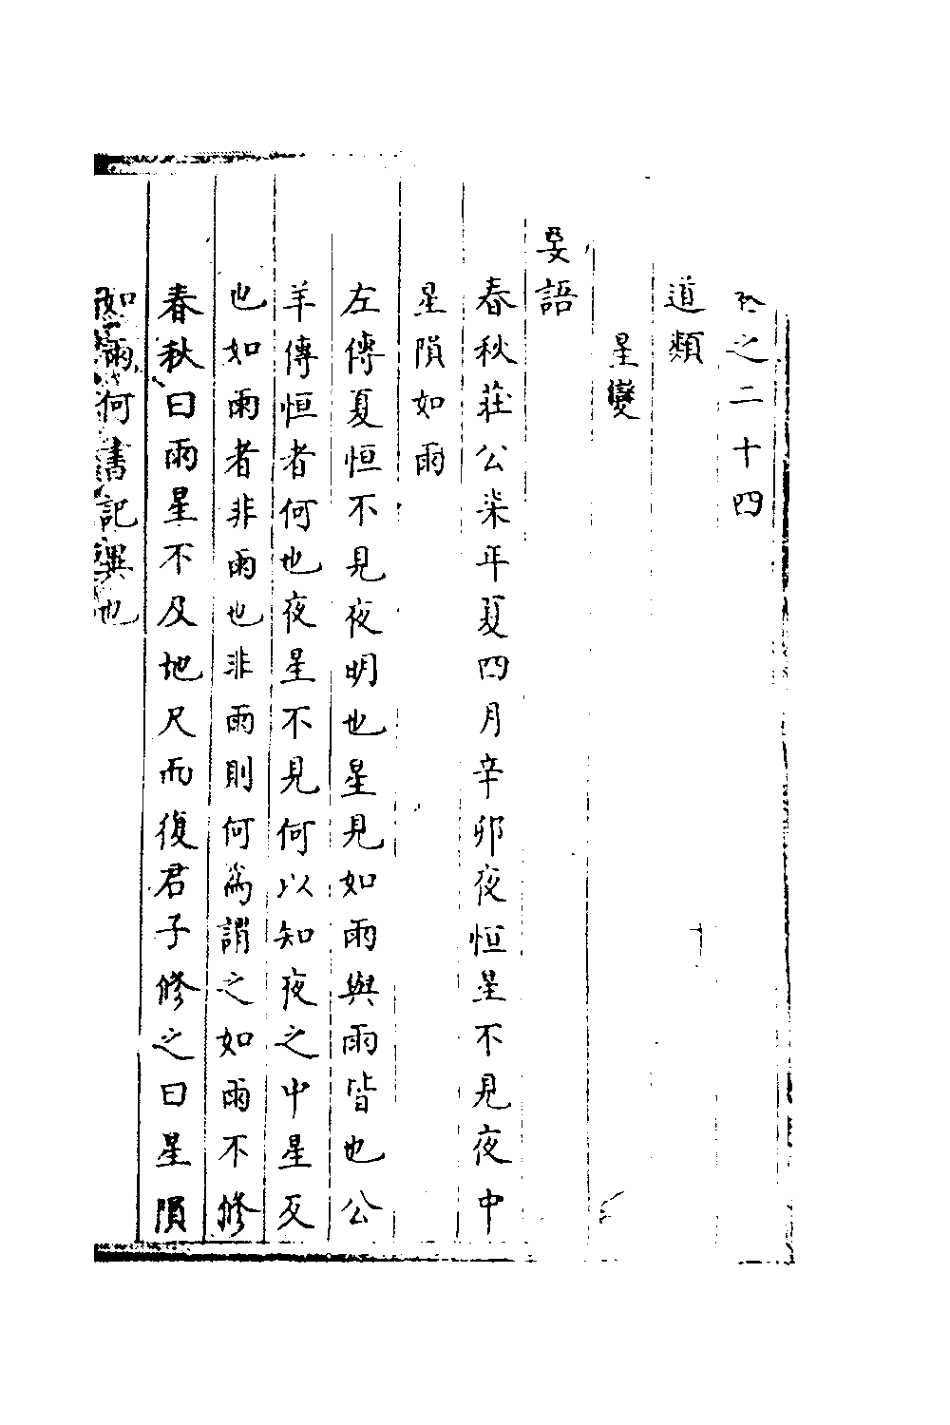 卷之二十四
道類
星變
晏語
春秋莊公柒年夏四月辛卯夜恒星不見夜中
星隕如雨
左傳夏恒不見夜明也星見如雨與雨皆也公
羊傳恒者何也夜星不見何以知夜之中星反
也如雨者非雨也非雨則何爲謂之如雨不修
春秋曰雨星不及地尺而復君子修之曰星隕
如雨何書記異也